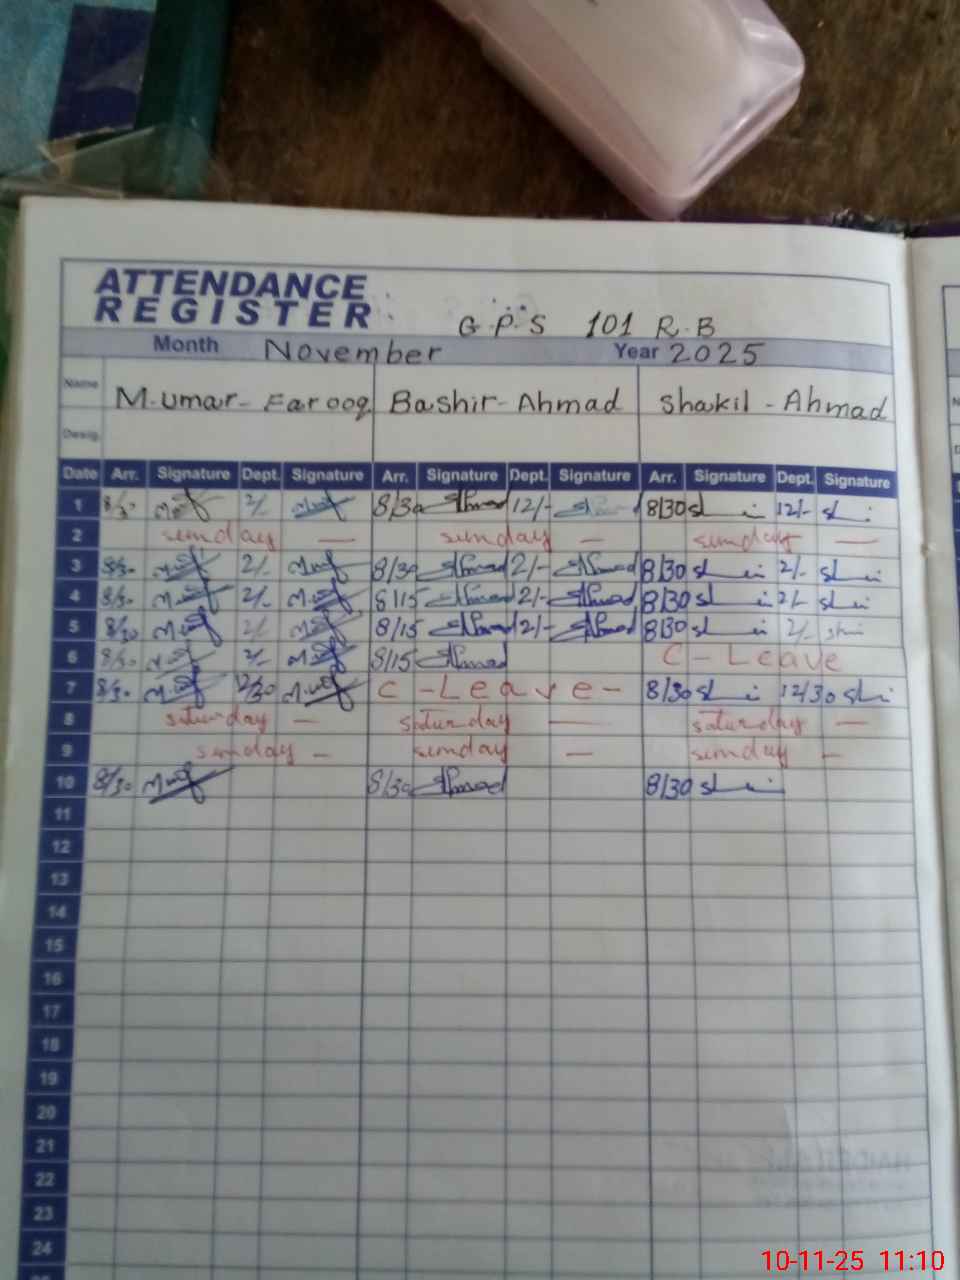 ATTENDANCE
REGISTER
G.P.S 101 R.B
Month November Year 2025
Name M-Umar-Farooq Bashir-Ahmad Shakil-Ahmad
Desig.
Date Arr. Signature Dept. Signature Arr. Signature Dept. Signature Arr. Signature Dept. Signature
1 8/30 2/- 8/30 12/- 8/30 12/-
2 sunday — sunday — sunday —
3 8/30 2/- 8/30 2/- 8/30 2/-
4 8/30 2/- 8/15 2/- 8/30 2/-
5 8/30 2/- 8/15 2/- 8/30 2/-
6 8/30 2/- 8/15 C-Leave
7 8/30 12/30 C-Leave- 8/30 12/30
8 saturday — saturday — saturday —
9 sunday — sunday — sunday —
10 8/30 8/30 8/30
11
12
13
14
15
16
17
18
19
20
21
22
23
24
10-11-25 11:10